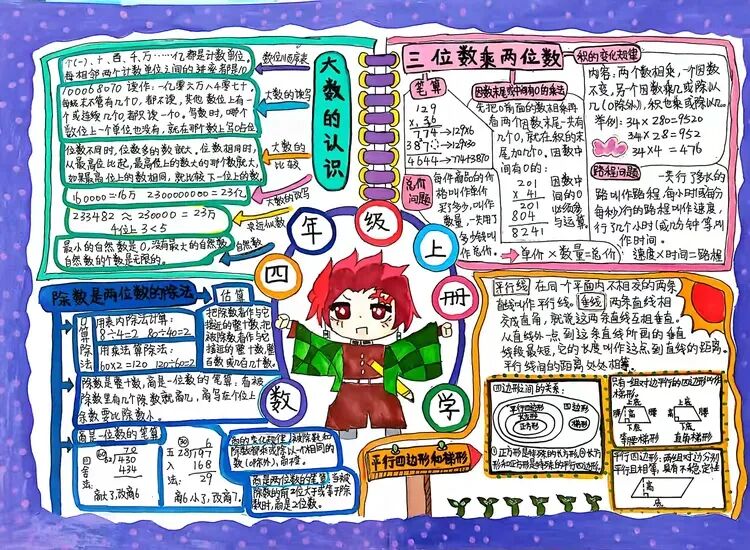 大数的认识
个(一)、十、百、千、万……亿都是计数单位。
每相邻两个计数单位之间的进率都是10。
数位顺序表
100068070 读作:一亿零六万八千零七十
每级末尾不管有几个0,都不读,其他数位上有一个
或连续几个0,都只读一个0。写数时,哪个
数位上一个单位也没有,就在那个数上写0占位
大数的读写
位数不同时,位数多的数就大。位数相同时,
从最高位比起,最高位上的数大的那个数就大,
如果最高位上的数相同,就比较下一位上的数。
大数的比较
160000=16万 2300000000=23亿
大数的改写
233482≈230000=23万
千位上3<5
求近似数
最小的自然数是0,没有最大的自然数
自然数的个数是无限的。
自然数
三位数乘两位数
笔算
129
× 36
774→129×6
387→129×30
4644→774+3870
因数末尾或中间有0的乘法
先把0前面的数相乘,再
看两个因数末尾一共有
几个0,就在积的末
尾加几个0。因数中
间有0的:
201
× 41
201
804
8241
因数中
间的0
必须参
与运算
积的变化规律
内容:两个数相乘,一个因数
不变,另一个因数乘几或除以
几(0除外),积也乘或除以几。
举例:34×280=9520
34×28=952
34×14=476
总价问题
每件商品的价
格叫作单价
买了多少,叫作
数量,一共用了
多少钱叫
作总价
单价×数量=总价
路程问题
一共行了多长的
路叫作路程,每小时(或每分
每秒)行的路程叫作速度,
行了几小时(或几分钟等)叫
作时间。
速度×时间=路程
四年级上册
数学
除数是两位数的除法
口算除法
用表内除法计算:
8÷4=2 80÷40=2
用乘法算除法:
60×2=120 120÷60=2
估算
把除数看作与它
接近的整十数,把
被除数看作与它
接近的整十数、整
百数或几百几十数。
除数是整十数,商是一位数的笔算:看被
除数里有几个除数就商几,商写在个位上
余数要比除数小。
商是一位数的笔算
四舍法:
434
高大了,改商6
五入法:
6
28)197
168
29
商6小了,改商7。
商的变化规律:被除数和
除数都乘或除以一个相同的
数(0除外),商不变。
商是两位数的笔算:当被
除数的前2位大于或等于除
数时,商是2位数。
平行四边形和梯形
平行线 在同一个平面内不相交的两条
直线叫作平行线。垂线 两条直线相
交成直角,就说这两条线互相垂直。
从直线外一点到这条直线所画的垂直
线段最短,它的长度叫作这点到直线的距离。
平行线间的距离处处相等。
四边形间的关系:
平行四边形
长方形
正方形
四边形
梯形
只有一组对边平行的四边形叫作
梯形。
上底
腰
高
腰
下底
等腰梯形
上底
高
腰
下底
直角梯形
平行四边形:两组对边分别
平行且相等,具有不稳定性
高
底